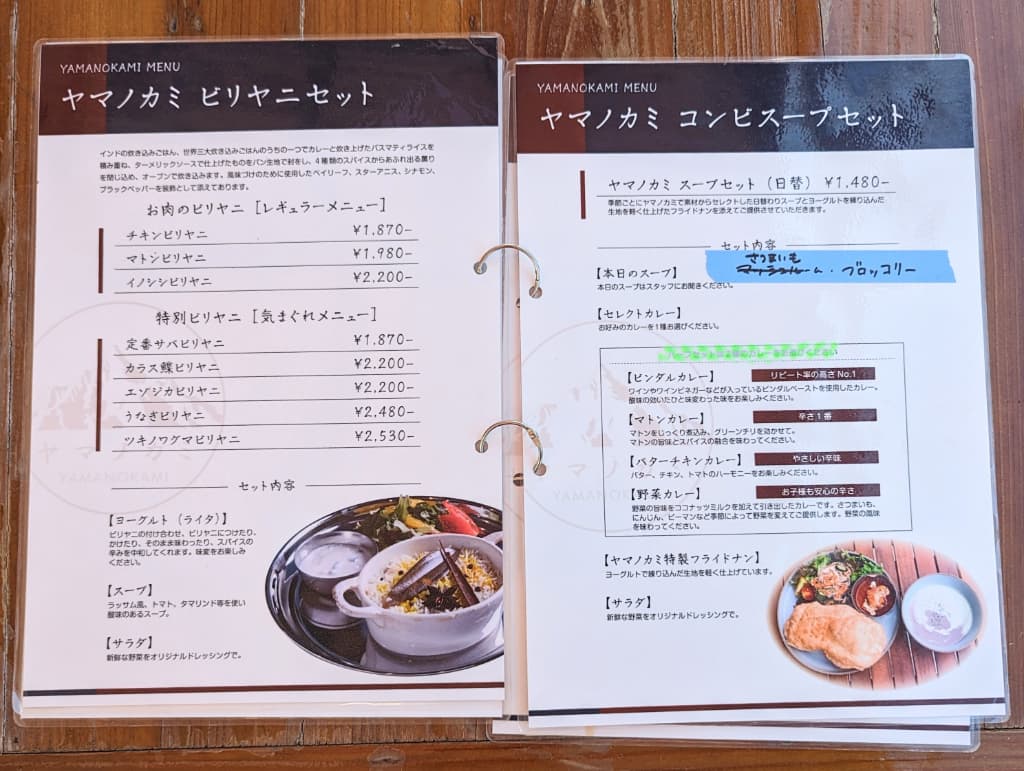 YAMANOKAMI MENU
ヤマノカミ ビリヤニセット
インドの炊き込みごはん、世界三大炊き込みごはんのうちの一つでカレーと炊き上げたバスマティライスを
積み重ね、ターメリックソースで仕上げたものをパン生地で封をし、4種類のスパイスからあふれ出る薫り
を閉じ込め、オーブンで炊き込みます。風味づけのために使用したベイリーフ、スターアニス、シナモン、
ブラックペッパーを装飾として添えております。
お肉のビリヤニ [レギュラーメニュー]
チキンビリヤニ ¥1,870-
マトンビリヤニ ¥1,980-
イノシシビリヤニ ¥2,200-
特別ビリヤニ [気まぐれメニュー]
定番サバビリヤニ ¥1,870-
カラス鰈ビリヤニ ¥2,200-
エゾジカビリヤニ ¥2,200-
うなぎビリヤニ ¥2,480-
ツキノワグマビリヤニ ¥2,530-
セット内容
【ヨーグルト(ライタ)】
ビリヤニの付け合わせ、ビリヤニにつけたり、
かけたり、そのまま味わったり、スパイスの
辛みを中和してくれます。味変をお楽しみ
ください。
【スープ】
ラッサム風、トマト、タマリンド等を使い
酸味のあるスープ。
【サラダ】
新鮮な野菜をオリジナルドレッシングで。
ヤマノカミ
YAMANOKAMI
YAMANOKAMI MENU
ヤマノカミ コンビスープセット
ヤマノカミ スープセット(日替) ¥1.480-
季節ごとにヤマノカミで素材からセレクトした日替わりスープとヨーグルトを練り込んだ
生地を軽く仕上げたフライドナンを添えてご提供させていただきます。
セット内容
【本日のスープ】
さつまいも
マッシュルーム・ブロッコリー
本日のスープはスタッフにお聞きください。
【セレクトカレー】
お好みのカレーを1種お選びください。
【ビンダルカレー】 リピート率の高さ No.1
ワインやワインビネガーなどが入っているビンダルペーストを使用したカレー。
酸味の効いたひと味変わった味をお楽しみください。
【マトンカレー】 辛さ1番
マトンをじっくり煮込み、グリーンチリを効かせて。
マトンの旨味とスパイスの融合を味わってください。
【バターチキンカレー】 やさしい辛味
バター、チキン、トマトのハーモニーをお楽しみください。
【野菜カレー】 お子様も安心の辛さ
野菜の旨味をココナッツミルクを加えて引き出したカレーです。さつまいも、
にんじん、ピーマンなど季節によって野菜を変えてご提供します。野菜の風味
を味わってください。
【ヤマノカミ特製フライドナン】
ヨーグルトで練り込んだ生地を軽く仕上げています。
【サラダ】
新鮮な野菜をオリジナルドレッシングで。